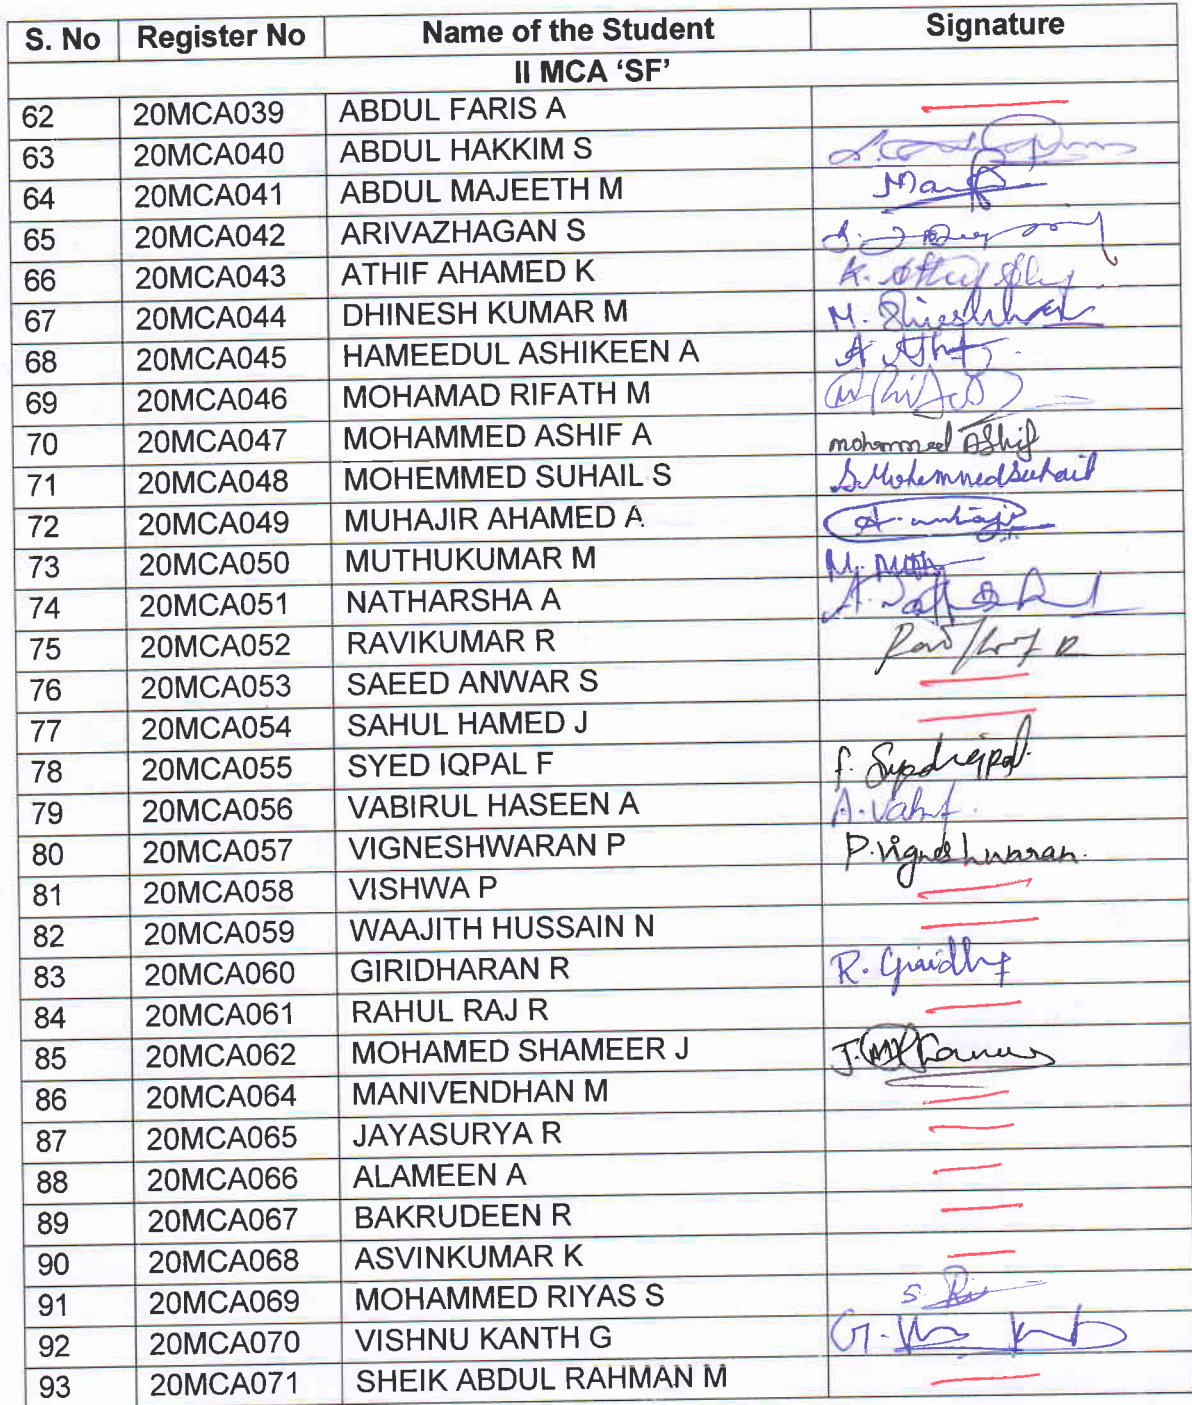 S. No Register No Name of the Student Signature
II MCA ‘SF’
62 20MCA039 ABDUL FARIS A
63 20MCA040 ABDUL HAKKIM S
64 20MCA041 ABDUL MAJEETH M
65 20MCA042 ARIVAZHAGAN S
66 20MCA043 ATHIF AHAMED K K.
67 20MCA044 DHINESH KUMAR M M.
68 20MCA045 HAMEEDUL ASHIKEEN A A
69 20MCA046 MOHAMAD RIFATH M
70 20MCA047 MOHAMMED ASHIF A mohammed Ashif
71 20MCA048 MOHEMMED SUHAIL S S.Mohemmed Suhail
72 20MCA049 MUHAJIR AHAMED A
73 20MCA050 MUTHUKUMAR M M.
74 20MCA051 NATHARSHA A A.
75 20MCA052 RAVIKUMAR R
76 20MCA053 SAEED ANWAR S
77 20MCA054 SAHUL HAMED J
78 20MCA055 SYED IQPAL F F.
79 20MCA056 VABIRUL HASEEN A A.
80 20MCA057 VIGNESHWARAN P P.Vigneshwaran.
81 20MCA058 VISHWA P
82 20MCA059 WAAJITH HUSSAIN N
83 20MCA060 GIRIDHARAN R R.
84 20MCA061 RAHUL RAJ R
85 20MCA062 MOHAMED SHAMEER J J.
86 20MCA064 MANIVENDHAN M
87 20MCA065 JAYASURYA R
88 20MCA066 ALAMEEN A
89 20MCA067 BAKRUDEEN R
90 20MCA068 ASVINKUMAR K
91 20MCA069 MOHAMMED RIYAS S S.
92 20MCA070 VISHNU KANTH G G.
93 20MCA071 SHEIK ABDUL RAHMAN M